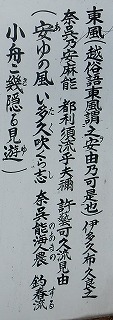 東風(越俗語東風謂之安由乃可是也) 伊多久布久良之
奈呉乃安麻能 都利須流乎夫禰 許藝可久流見由
(安ゆの風 い多久吹くら志 奈呉能海人農 釣春流
小舟こ幾隠る見遊)